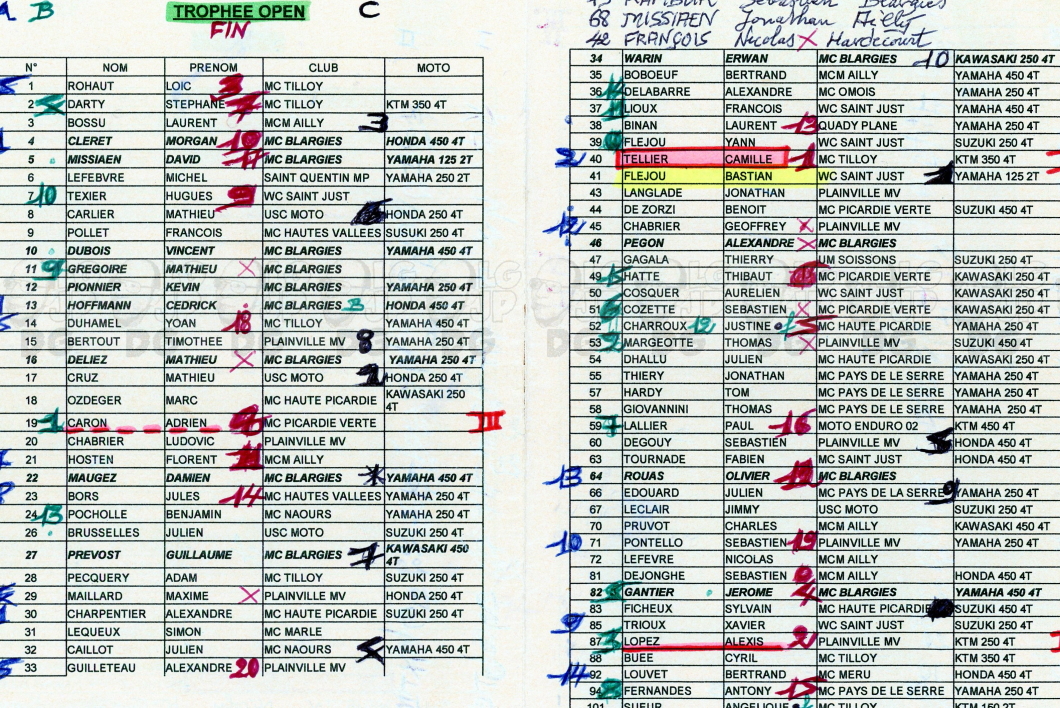 A B TROPHEE OPEN C
FIN
N° NOM PRENOM CLUB MOTO
1 ROHAUT LOIC 3 MC TILLOY
2 DARTY STEPHANE 7 MC TILLOY KTM 350 4T
3 BOSSU LAURENT MCM AILLY 3
4 CLERET MORGAN 10 MC BLARGIES HONDA 450 4T
5 MISSIAEN DAVID 17 MC BLARGIES YAMAHA 125 2T
6 LEFEBVRE MICHEL SAINT QUENTIN MP YAMAHA 250 2T
7 10 TEXIER HUGUES 9 WC SAINT JUST
8 CARLIER MATHIEU USC MOTO HONDA 250 4T
9 POLLET FRANCOIS MC HAUTES VALLEES SUSUKI 250 4T
10 DUBOIS VINCENT MC BLARGIES YAMAHA 450 4T
11 9 GREGOIRE MATHIEU X MC BLARGIES
12 PIONNIER KEVIN MC BLARGIES YAMAHA 250 4T
13 HOFFMANN CEDRICK MC BLARGIES B HONDA 450 4T
14 DUHAMEL YOAN 18 MC TILLOY YAMAHA 450 4T
15 BERTOUT TIMOTHEE PLAINVILLE MV 8 YAMAHA 250 4T
16 DELIEZ MATHIEU X MC BLARGIES YAMAHA 250 4T
17 CRUZ MATHIEU USC MOTO 2 HONDA 250 4T
18 OZDEGER MARC MC HAUTE PICARDIE KAWASAKI 250 4T
19 1 CARON ADRIEN MC PICARDIE VERTE III
20 CHABRIER LUDOVIC PLAINVILLE MV
21 HOSTEN FLORENT 11 MCM AILLY
22 MAUGEZ DAMIEN MC BLARGIES YAMAHA 450 4T
23 BORS JULES 14 MC HAUTES VALLEES YAMAHA 250 4T
24 13 POCHOLLE BENJAMIN MC NAOURS YAMAHA 250 4T
26 BRUSSELLES JULIEN USC MOTO SUZUKI 250 4T
27 PREVOST GUILLAUME MC BLARGIES 7 KAWASAKI 450 4T
28 PECQUERY ADAM MC TILLOY SUZUKI 250 4T
29 MAILLARD MAXIME X PLAINVILLE MV HONDA 250 4T
30 CHARPENTIER ALEXANDRE MC HAUTE PICARDIE SUZUKI 250 4T
31 LEQUEUX SIMON MC MARLE
32 CAILLOT JULIEN MC NAOURS YAMAHA 450 4T
33 GUILLETEAU ALEXANDRE 20 PLAINVILLE MV
68 MISSIAEN Jonathan Ailly
42 FRANÇOIS Nicolas X Hardecourt
34 WARIN ERWAN MC BLARGIES 10 KAWASAKI 250 4T
35 BOBOEUF BERTRAND MCM AILLY YAMAHA 450 4T
36 DELABARRE ALEXANDRE MC OMOIS YAMAHA 250 4T
37 LIOUX FRANCOIS WC SAINT JUST YAMAHA 450 4T
38 BINAN LAURENT 13 QUADY PLANE YAMAHA 450 4T
39 FLEJOU YANN WC SAINT JUST SUZUKI 250 4T
2 40 TELLIER CAMILLE 1 MC TILLOY KTM 350 4T
41 FLEJOU BASTIAN WC SAINT JUST 1 YAMAHA 125 2T
43 LANGLADE JONATHAN PLAINVILLE MV
44 DE ZORZI BENOIT MC PICARDIE VERTE SUZUKI 450 4T
12 45 CHABRIER GEOFFREY X PLAINVILLE MV
46 PEGON ALEXANDRE X MC BLARGIES
47 GAGALA THIERRY UM SOISSONS SUZUKI 250 4T
49 15 HATTE THIBAUT MC PICARDIE VERTE KAWASAKI 250 4T
50 COSQUER AURELIEN WC SAINT JUST KAWASAKI 250 4T
51 6 COZETTE SEBASTIEN X MC PICARDIE VERTE KAWASAKI 250 4T
52 CHARROUX 12 JUSTINE MC HAUTE PICARDIE YAMAHA 250 4T
53 2 MARGEOTTE THOMAS X PLAINVILLE MV SUZUKI 450 4T
54 DHALLU JULIEN MC HAUTE PICARDIE KAWASAKI 250 4T
55 THIERY JONATHAN MC PAYS DE LE SERRE YAMAHA 250 4T
57 HARDY TOM MC PAYS DE LE SERRE YAMAHA 250 4T
58 GIOVANNINI THOMAS MC PAYS DE LE SERRE YAMAHA 250 4T
59 7 LALLIER PAUL 16 MOTO ENDURO 02 KTM 450 4T
60 DEGOUY SEBASTIEN PLAINVILLE MV HONDA 450 4T
63 TOURNADE FABIEN MC SAINT JUST HONDA 450 4T
13 64 ROUAS OLIVIER 12 MC BLARGIES
66 EDOUARD JULIEN MC PAYS DE LA SERRE 9 YAMAHA 250 4T
67 LECLAIR JIMMY USC MOTO SUZUKI 250 4T
70 PRUVOT CHARLES MCM AILLY KAWASAKI 450 4T
10 71 PONTELLO SEBASTIEN 19 PLAINVILLE MV YAMAHA 250 4T
72 LEFEVRE NICOLAS MCM AILLY
81 DEJONGHE SEBASTIEN MCM AILLY HONDA 450 4T
82 GANTIER JEROME 4 MC BLARGIES YAMAHA 450 4T
83 FICHEUX SYLVAIN MC HAUTE PICARDIE SUZUKI 450 4T
9 85 TRIOUX XAVIER WC SAINT JUST SUZUKI 250 4T
87 3 LOPEZ ALEXIS 2 PLAINVILLE MV KTM 250 4T
88 BUEE CYRIL MC TILLOY KTM 350 4T
14 92 LOUVET BERTRAND MC MERU HONDA 250 4T
94 8 FERNANDES ANTONY 15 MC PAYS DE LE SERRE YAMAHA 250 4T
101 SUEUR ANGELIQUE MC TILLOY KTM 150 2T